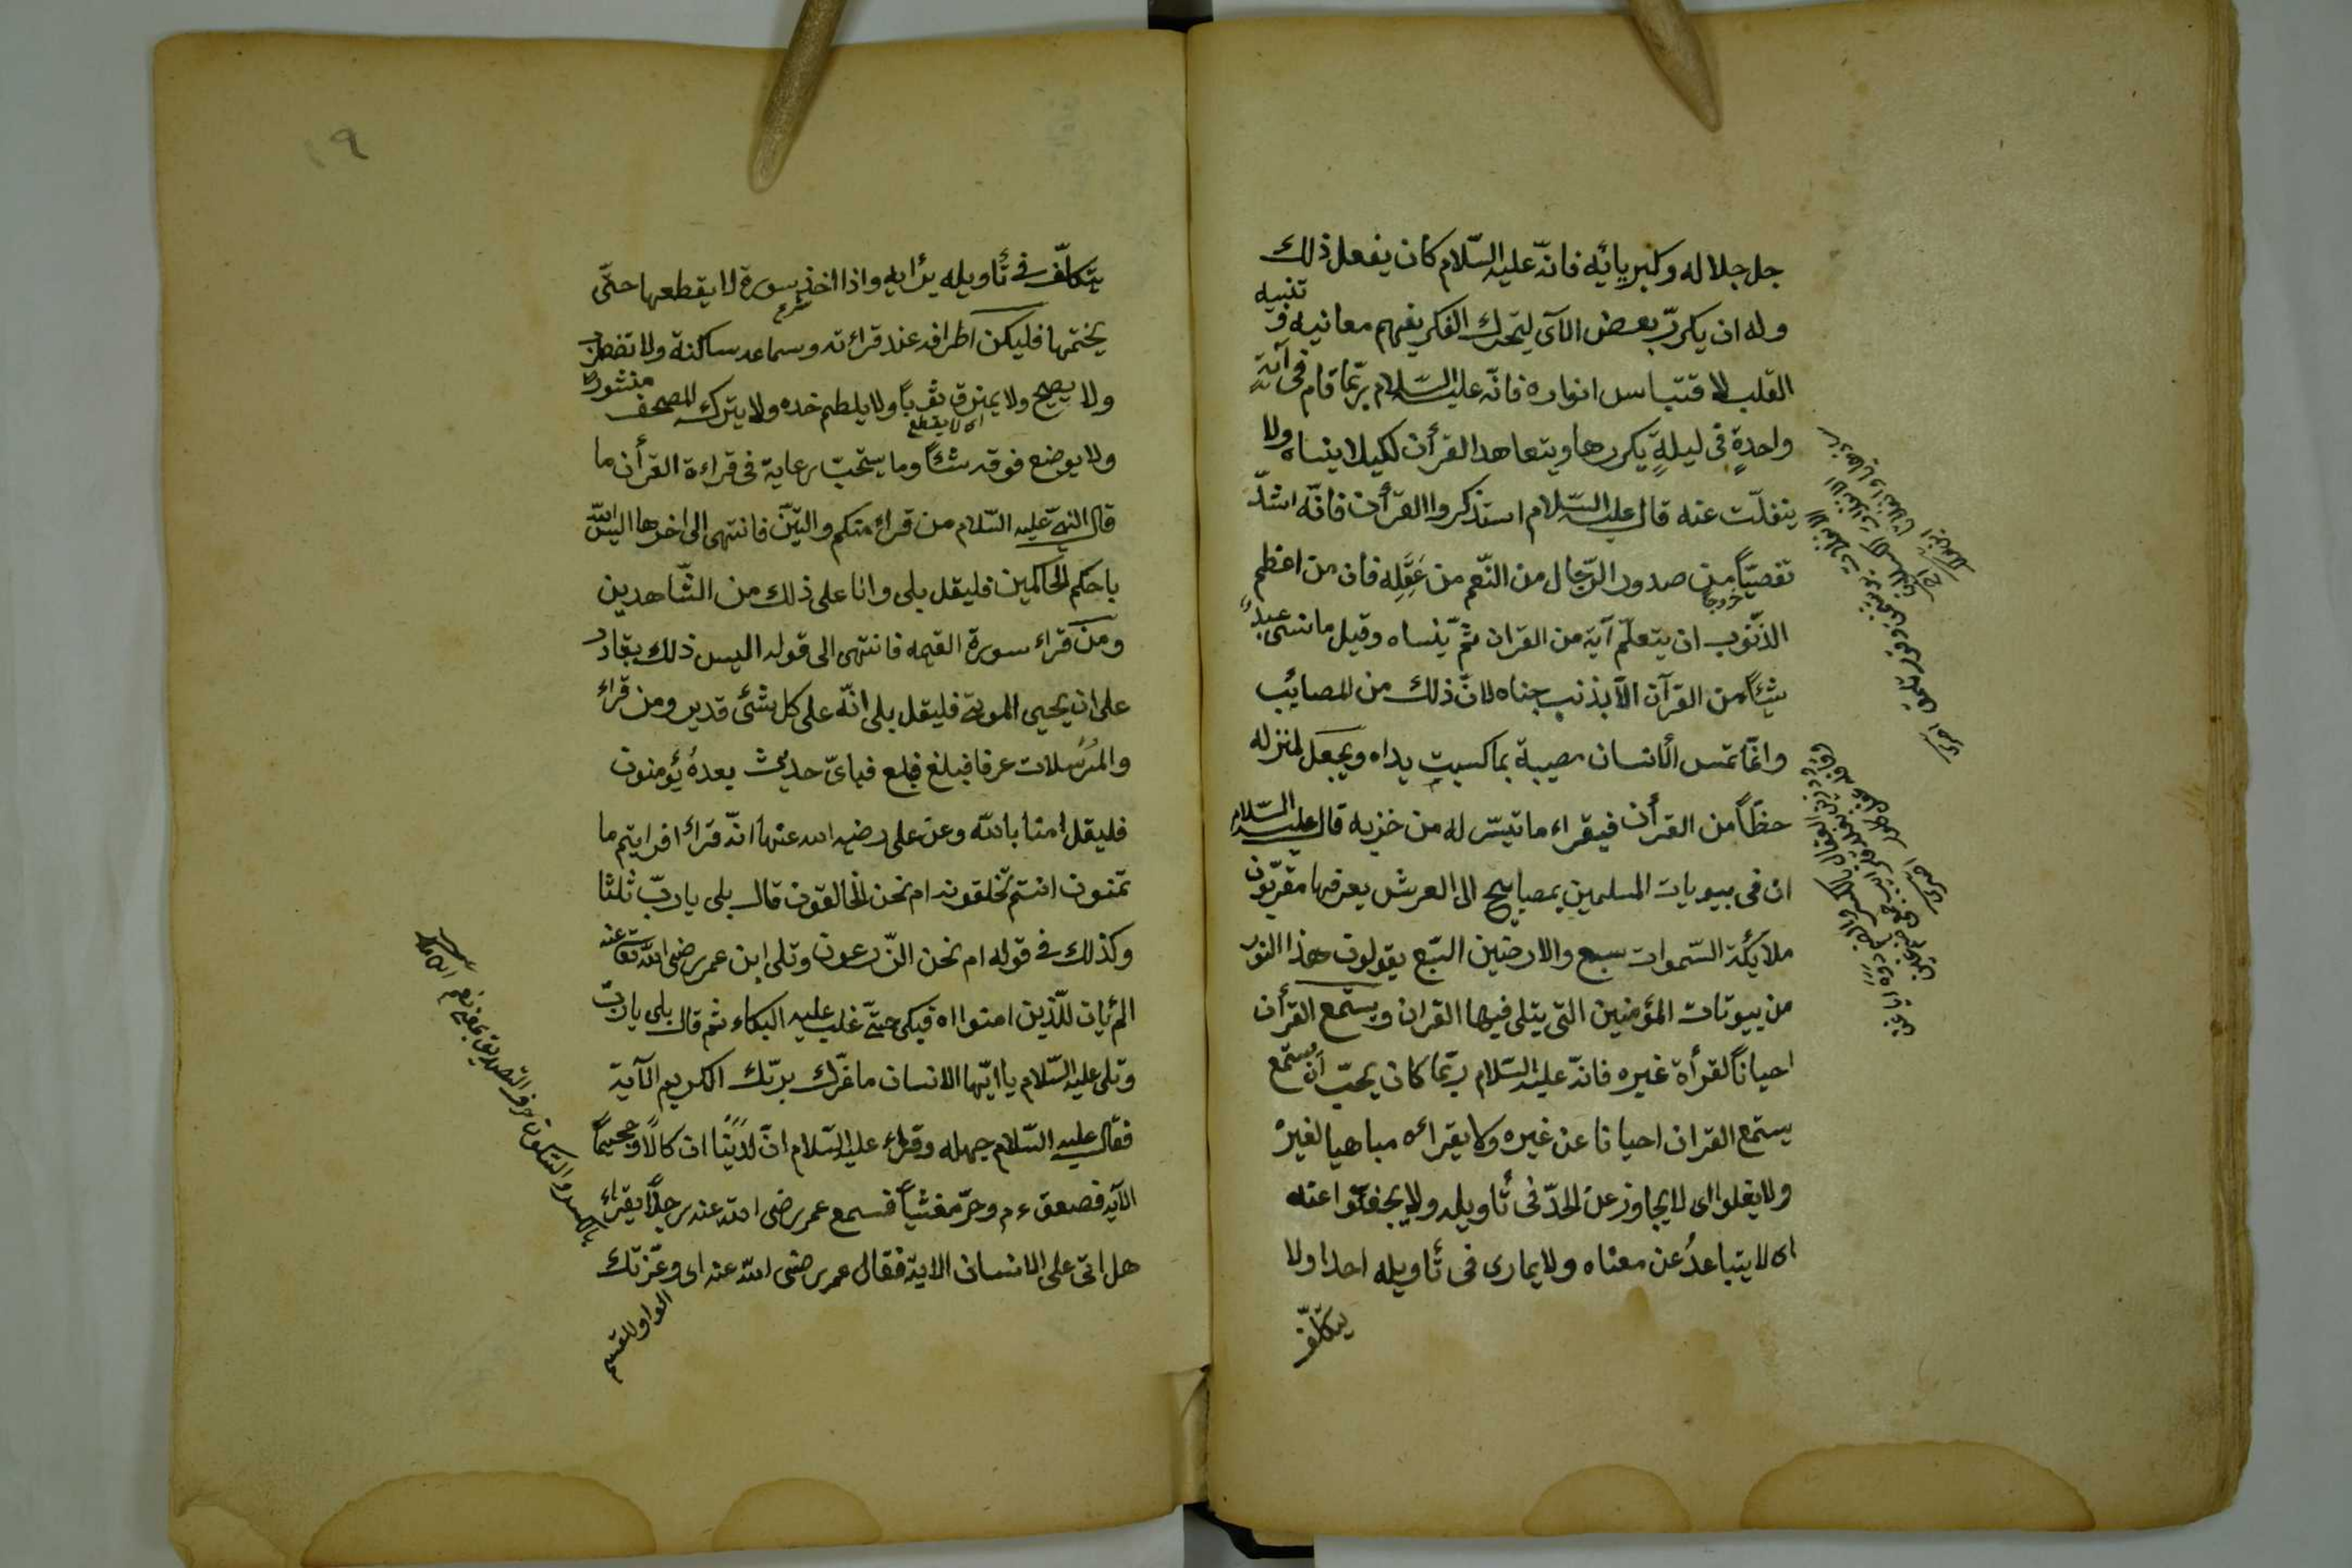 جل جلاله وكبريائه فانّه عليه السّلام كان يفعل ذلك
وله ان يكرّر بعض الآى ليتحرك الفكر بفهم معانيه و تنبيه
القلب لاقتباس انواره فانّه عليه السّلام ربّما قام فى آية
واحدةٍ فى ليلةٍ يكررها ويتعاهد القرأن لكيلا ينساه ولا
ينفلّت عنه قال عليه السّلام استذكروا القرأن فانّه اشدّ
تفصيّاً من صدور الرّجال من النّعم من عقله فان من اعظم
خروجا
الذّنوب ان يتعلّم آية من القران ثمّ ينساه وقيل ما نسى عبدٌ
شيئاً من القرآن الاّ بذنب جناه لانّ ذلك من المصايب
وانّما تمس الانسان مصيبة بما كسبت يداه ويجعل لمنزله
حظّاً من القرأن فيقراء ما تيسّر له من حزبه قال عليه السّلام
ان فى بيوتات المسلمين لمصابيح الى العرش يعرفها مقرّبون
ملائكة السّموات سبع والارضين السّبع يقولون هذا النور
من بيوتات المؤمنين التى يتلى فيها القران ويستمع القرأن
احياناً لقرأة غيره فانّه عليه السّلام ربّما كان يحبّ ان يستمع
يستمع القران احيانا عن غيره ولا يقراءه مباهيا لغيره
ولا يغلوا اى لا يجاوز عن الحدّ فى تأويله ولا يجفوا عنه
اى لا يتباعدُ عن معناه ولا يمارى فى تأويله احدا ولا
يتكلّف
١٩
يتكلّف فى تأويله برايه واذا اخذ بسورة لا يقطعها حتّى
شرع
يختمها فليكن اطرافه عند قراءته وسماعه ساكنة ولا تضطرب
ولا يصيح ولا يمزق ثوباً ولا يلطم خده ولا يترك المصحف منشورا
اى لا يقطع
ولا يوضع فوقه شئ وما يستحبّ رعاية فى قراءة القرأن ما
قال النبىّ عليه السّلام من قراء منكم والتّين فانتهى الى اخرها اليس الله
باحكم الحاكمين فليقل بلى وانا على ذلك من الشّاهدين
ومن قراء سورة القيمه فانتهى الى قوله اليس ذلك بقادر
على ان يحيى الموتى فليقل بلى انّه على كل شئ قدير ومن قراء
والمرسلات عرفا فبلغ فباىّ حديث بعده يؤمنون
فليقل امنا بالله وعن على رضى الله عنها انّه قراء افرايتم ما
تمنون انتم تخلقونه ام نحن الخالقون قال بلى ياربّ ثلثا
وكذلك فى قوله ام نحن الزّارعون وتلى ابن عمر رضى الله تعا عنه
الم يان للّذين امنوا اه فبكى حتّى غلب عليه البكاء ثم قال بلى يا ربّ
وتلى عليه السّلام يا ايّها الانسان ما غرّك بربّك الكريم الآية
فقال عليه السّلام جهله وقراء عليه السّلام انّ لدينا انكالاً وجحيماً
الآيه فصعق ءم وخرّ مغشيّاً فسمع عمر رضى الله عنه رجلاً يقراء
هل اتى على الانسان الايه فقال عمر رضى الله عنه اى وعزّتك
الواو للقسم